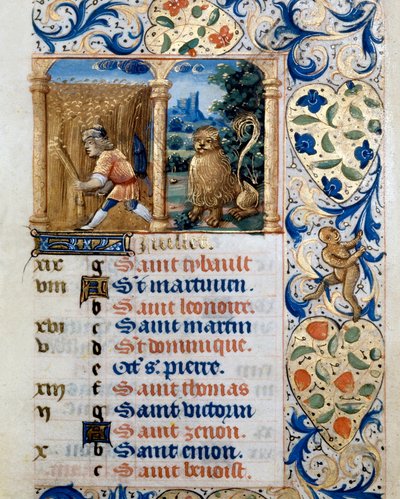 Juillet.
xix g Saint tybault
viii A St martinien.
b Saint leonore.
xvi c Saint martin
v d St dominique.
e Oct s. pierre.
xiii f Saint thomas
ii g Saint victorin
A Saint zenon.
x b Saint emon.
c Saint benoist.